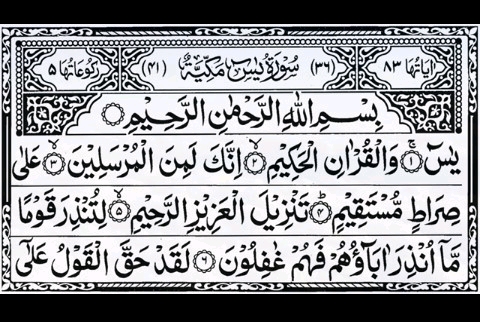 اٰیَاتُهَا ۸۳ (۳۶) سُوْرَةُ یٰسٓ مَکِّیَّةٌ (۴۱) رُکُوْعَاتُهَا ۵
بِسْمِ اللّٰهِ الرَّحْمٰنِ الرَّحِیْمِ
یٰسٓ ۱ وَالْقُرْاٰنِ الْحَکِیْمِ ۲ اِنَّكَ لَمِنَ الْمُرْسَلِیْنَ ۳ عَلٰی
صِرَاطٍ مُّسْتَقِیْمٍ ۴ تَنْزِیْلَ الْعَزِیْزِ الرَّحِیْمِ ۵ لِتُنْذِرَ قَوْمًا
مَّاۤ اُنْذِرَ اٰبَآؤُهُمْ فَهُمْ غٰفِلُوْنَ ۶ لَقَدْ حَقَّ الْقَوْلُ عَلٰۤی